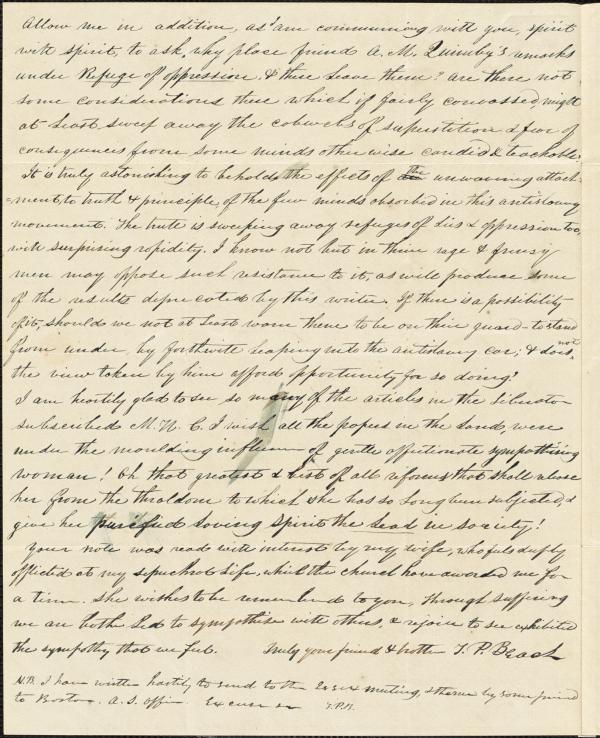 Allow me in addition, as I am communing with you, spirit
with spirit, to ask, why place friend A. M. Quimby's remarks
under Refuge of oppression, & there leave them? are there not
some considerations there which if fairly canvassed might
at least sweep away the cobwebs of superstition & fear of
consequences from some minds otherwise candid & teachable.
It is truly astonishing to behold the effects of the unwavering attach-
=ment, to truth & principle, of the few minds absorbed in this antislavery
movement. The truth is sweeping away refuges of lies & oppression too,
with surprising rapidity. I know not but in their rage & frenzy
men may oppose such resistance to it, as will produce some
of the results deprecated by this writer. If there is a possibility
of it, should we not at least warn them to be on their guard - to stand
from under, by forthwith leaping into the antislavery car; & does not
the view taken by him afford opportunity for so doing?
I am heartily glad to see so many of the articles in the Liberator
subscribed M. W. C. I wish all the papers in the land, were
under the moulding influence of gentle affectionate sympathising
woman! Oh that greatest & best of all reforms that shall release
her from the thraldom to which she has so long been subjected, &
give her purified loving spirit the lead in society!
Your note was read with interest by my wife, who feels deeply
afflicted at my sepulchral life, which the church have awarded me for
a time. She wishes to be remembered to you, through suffering
we are both led to sympathise with others, & rejoice to see exhibited
the sympathy that we feel. Truly your friend & brother T. P. Beach
N.B. I have written hastily to send to the Essex meeting, & thence by some friend
to Boston. A. S. office. Excuse T.P.B.